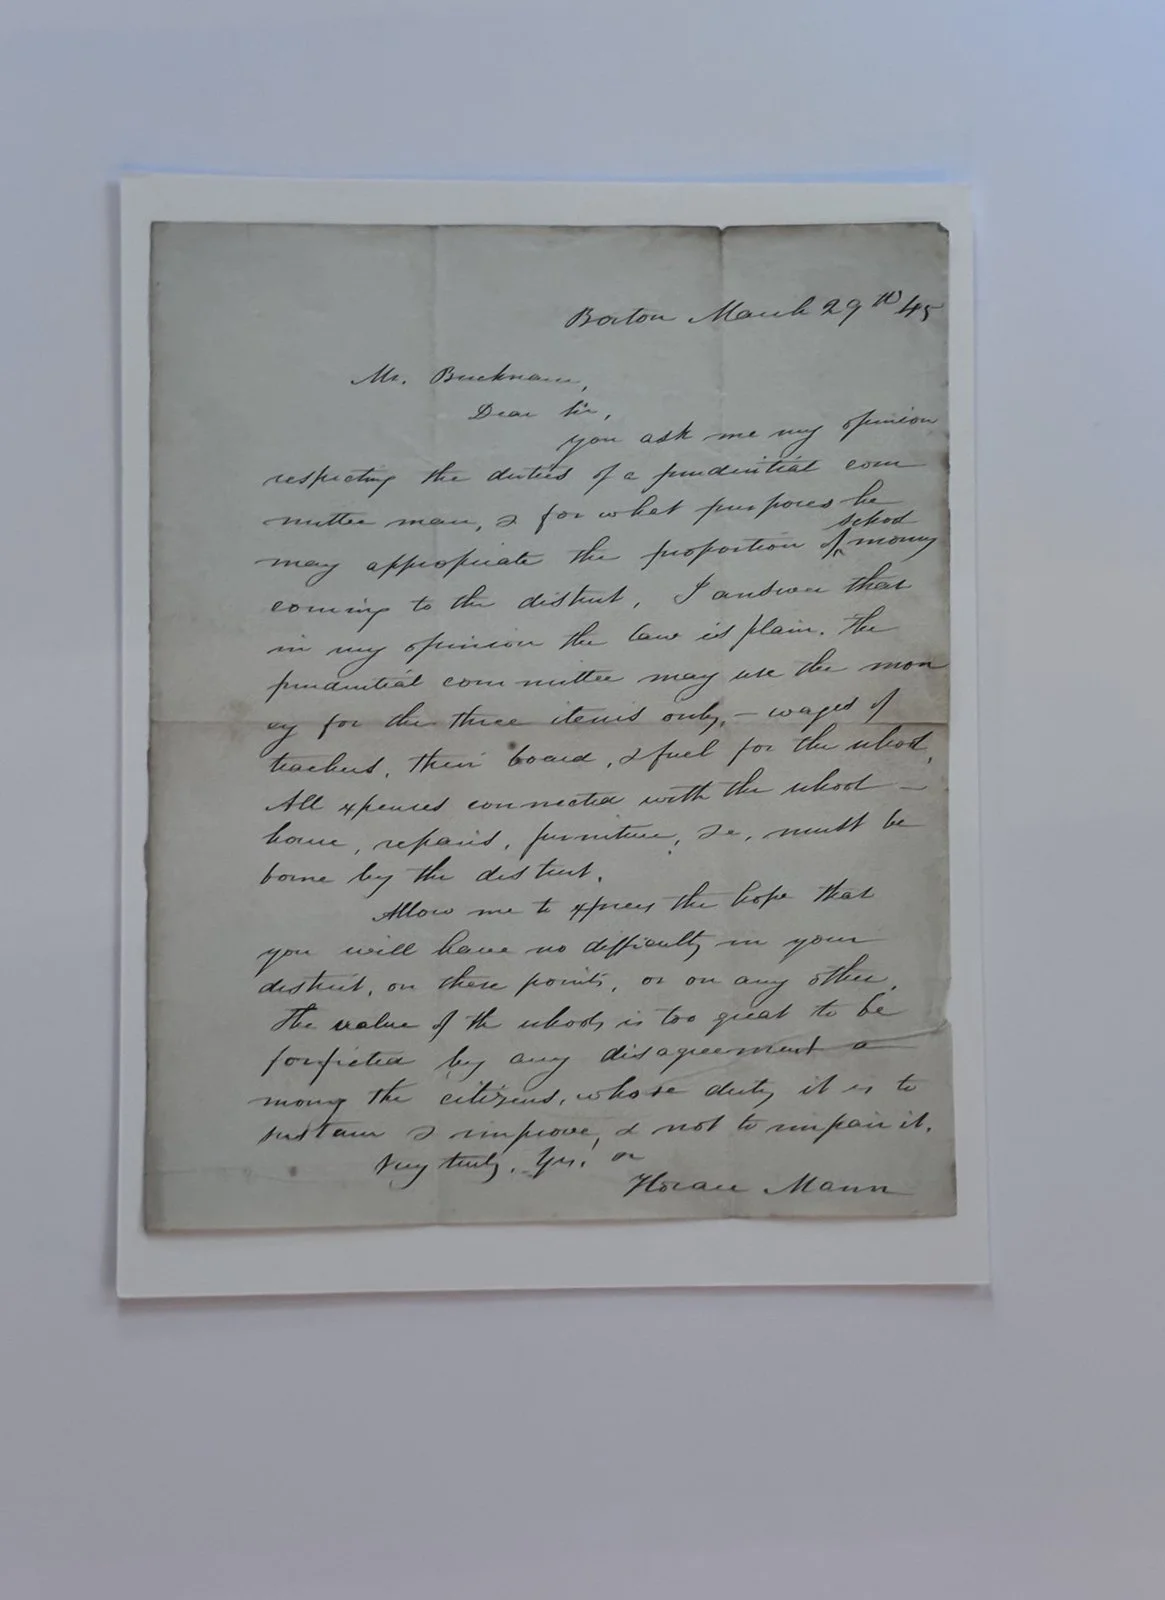 Boston March 29th 45
Mr. Bucknam,
Dear Sir,
you ask me my opinion
respecting the duties of a prudential com
mittee man, & for what purposes he
may appropriate the proportion of school money
coming to the district. I answer that
in my opinion the law is plain. The
prudential committee may use the mon
ey for the three items only, – wages of
teachers, their board, & fuel for the school.
All expenses connected with the school –
house, repairs, furniture, &c, must be
borne by the district.
Allow me to express the hope that
you will have no difficulty in your
district, on these points, or on any other.
The value of the schools is too great to be
forfeited by any disagreement a
mong the citizens, whose duty it is to
sustain & improve, & not to impair it.
Very truly, Yrs.
Horace Mann